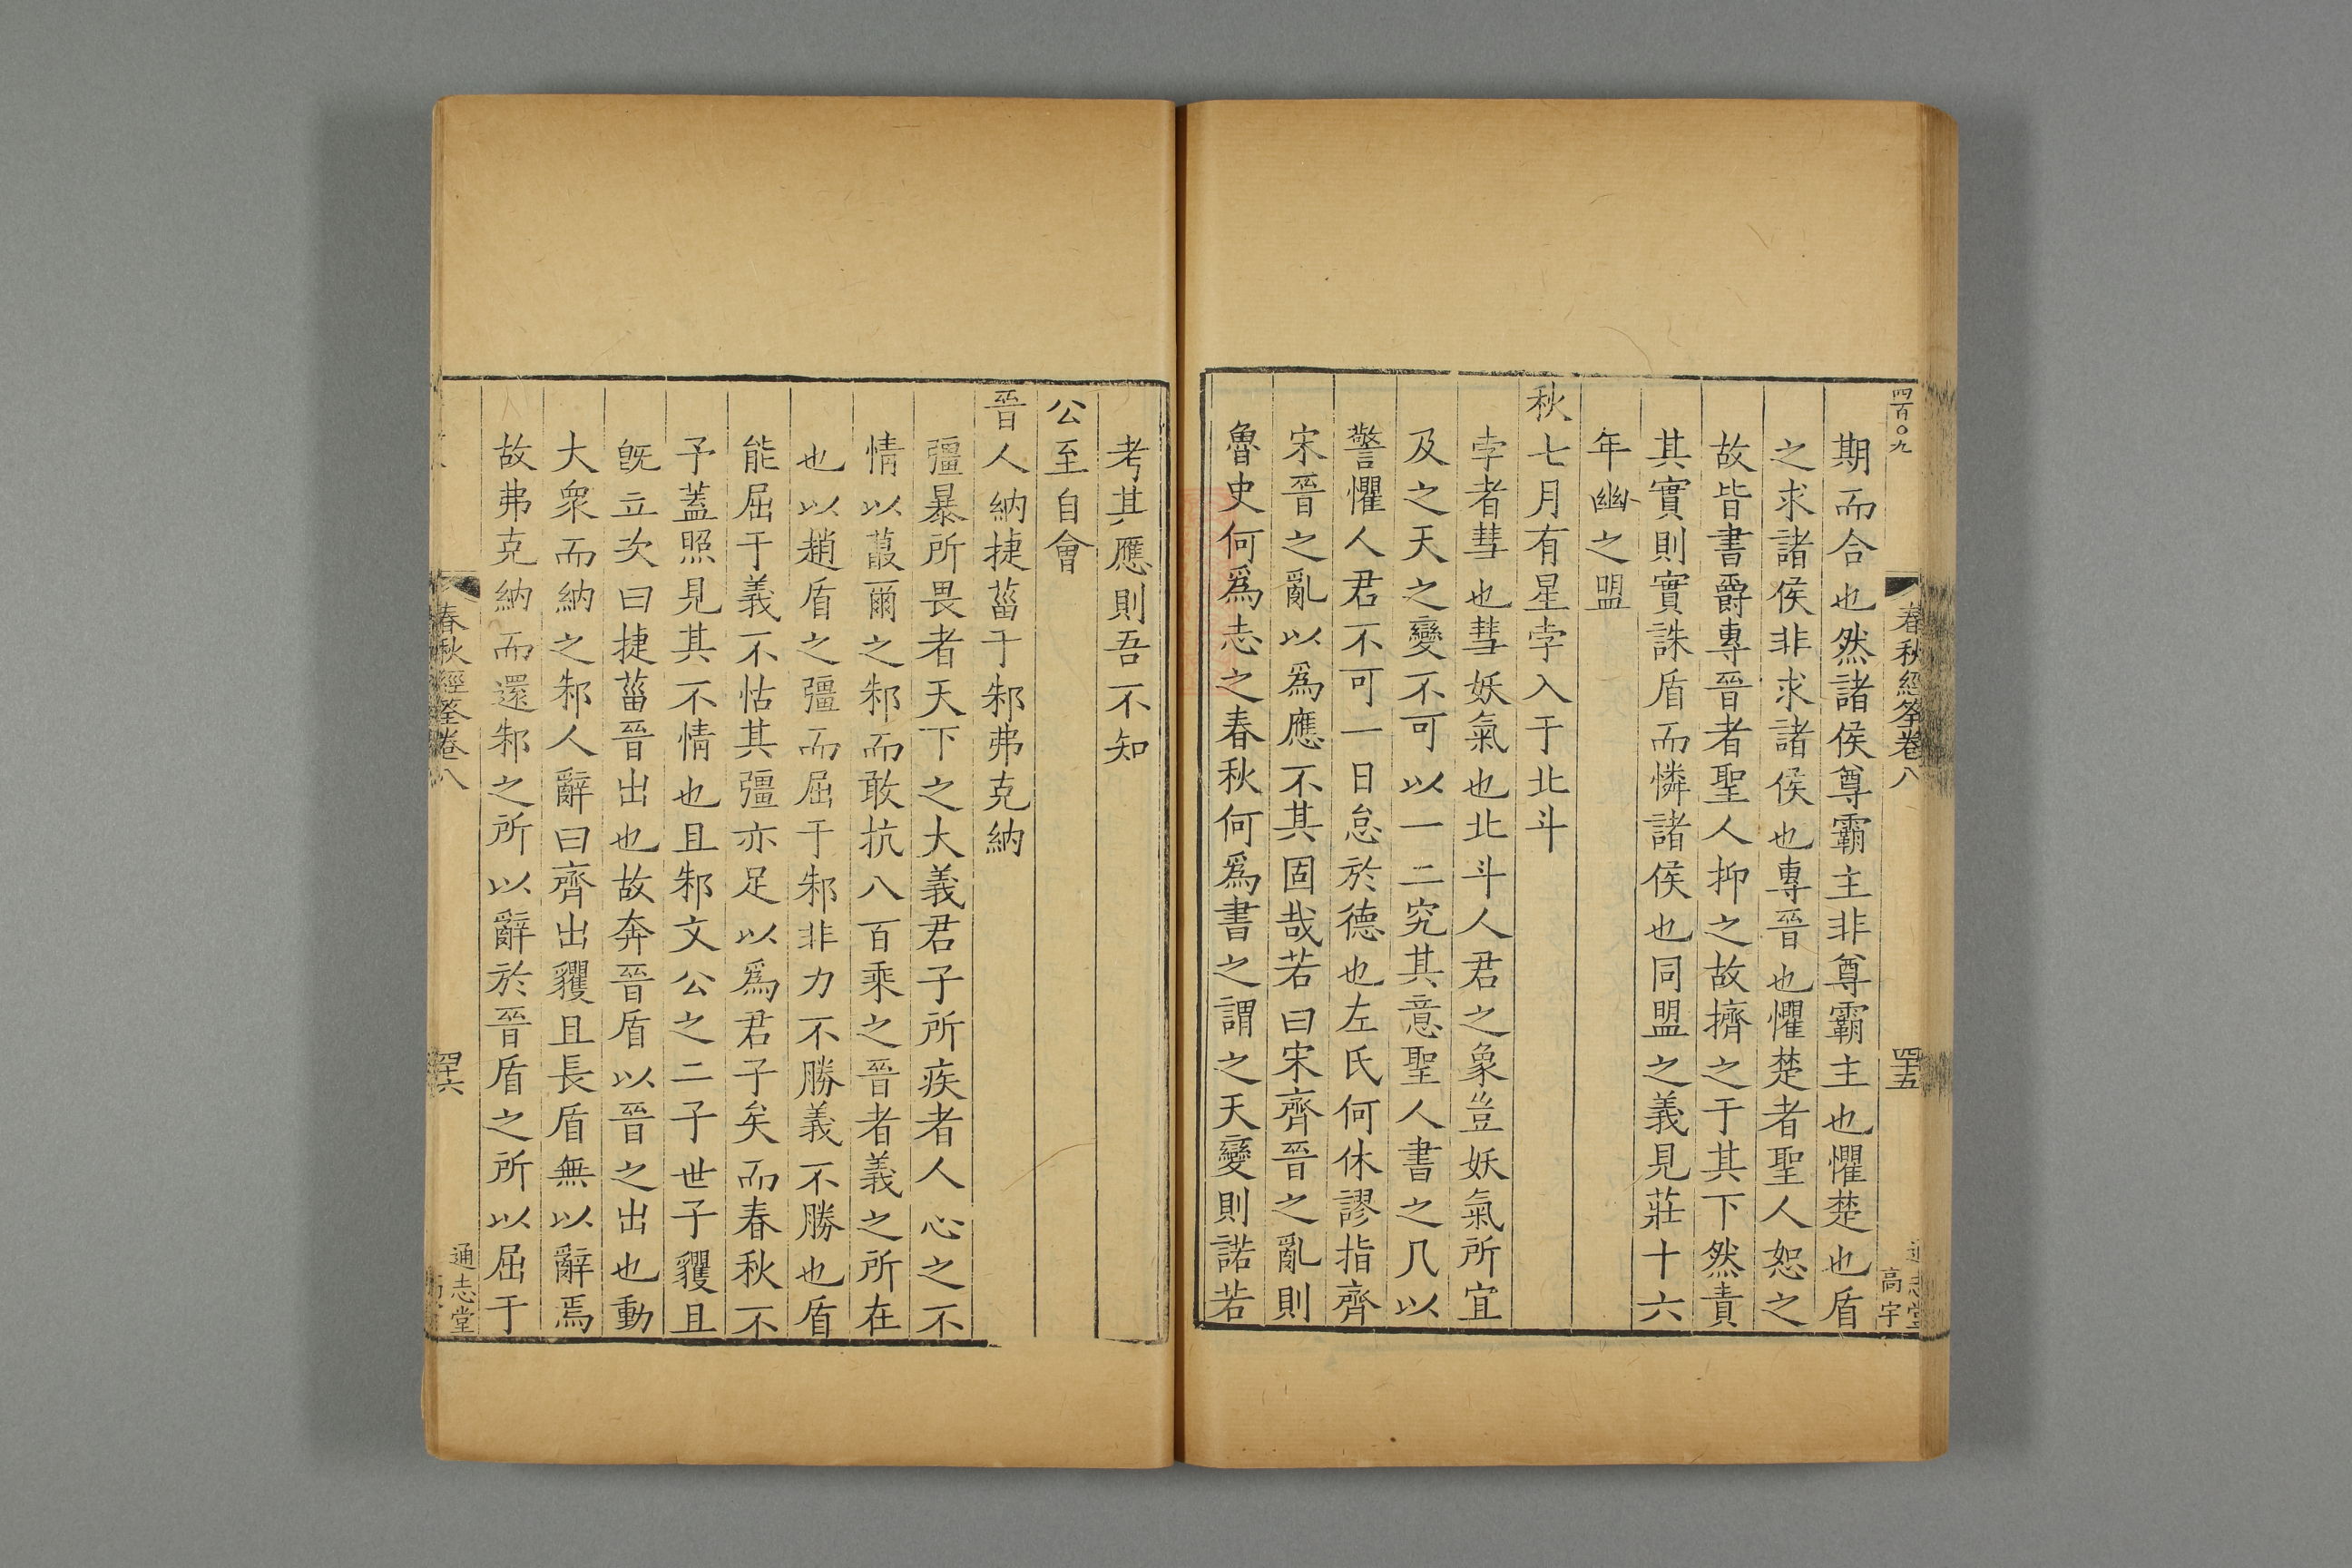 四百〇九
春秋經筌卷八
四十五
高宇
期而合也然諸侯尊霸主非尊霸主也懼楚也盾
之求諸侯非求諸侯也專晉也懼楚者聖人恕之
故皆書爵專晉者聖人抑之故擠之于其下然責
其實則實誅盾而憐諸侯也同盟之義見莊十六
年幽之盟
秋七月有星孛入于北斗
孛者彗也彗妖氣也北斗人君之象豈妖氣所宜
及之天之變不可以一二究其意聖人書之凡以
警懼人君不可一日怠於德也左氏何休謬指齊
宋晉之亂以爲應不其固哉若曰宋齊晉之亂則
魯史何爲志之春秋何爲書之謂之天變則諾若
考其應則吾不知
公至自會
晉人納捷菑于邾弗克納
彊暴所畏者天下之大義君子所疾者人心之不
情以蕞爾之邾而敢抗八百乘之晉者義之所在
也以趙盾之彊而屈于邾非力不勝義不勝也盾
能屈于義不怙其彊亦足以爲君子矣而春秋不
予蓋照見其不情也且邾文公之二子世子貜且
旣立次曰捷菑晉出也故奔晉盾以晉之出也動
大衆而納之邾人辭曰齊出貜且長盾無以辭焉
故弗克納而還邾之所以辭於晉盾之所以屈于
春秋經筌卷八
四十六
通志堂